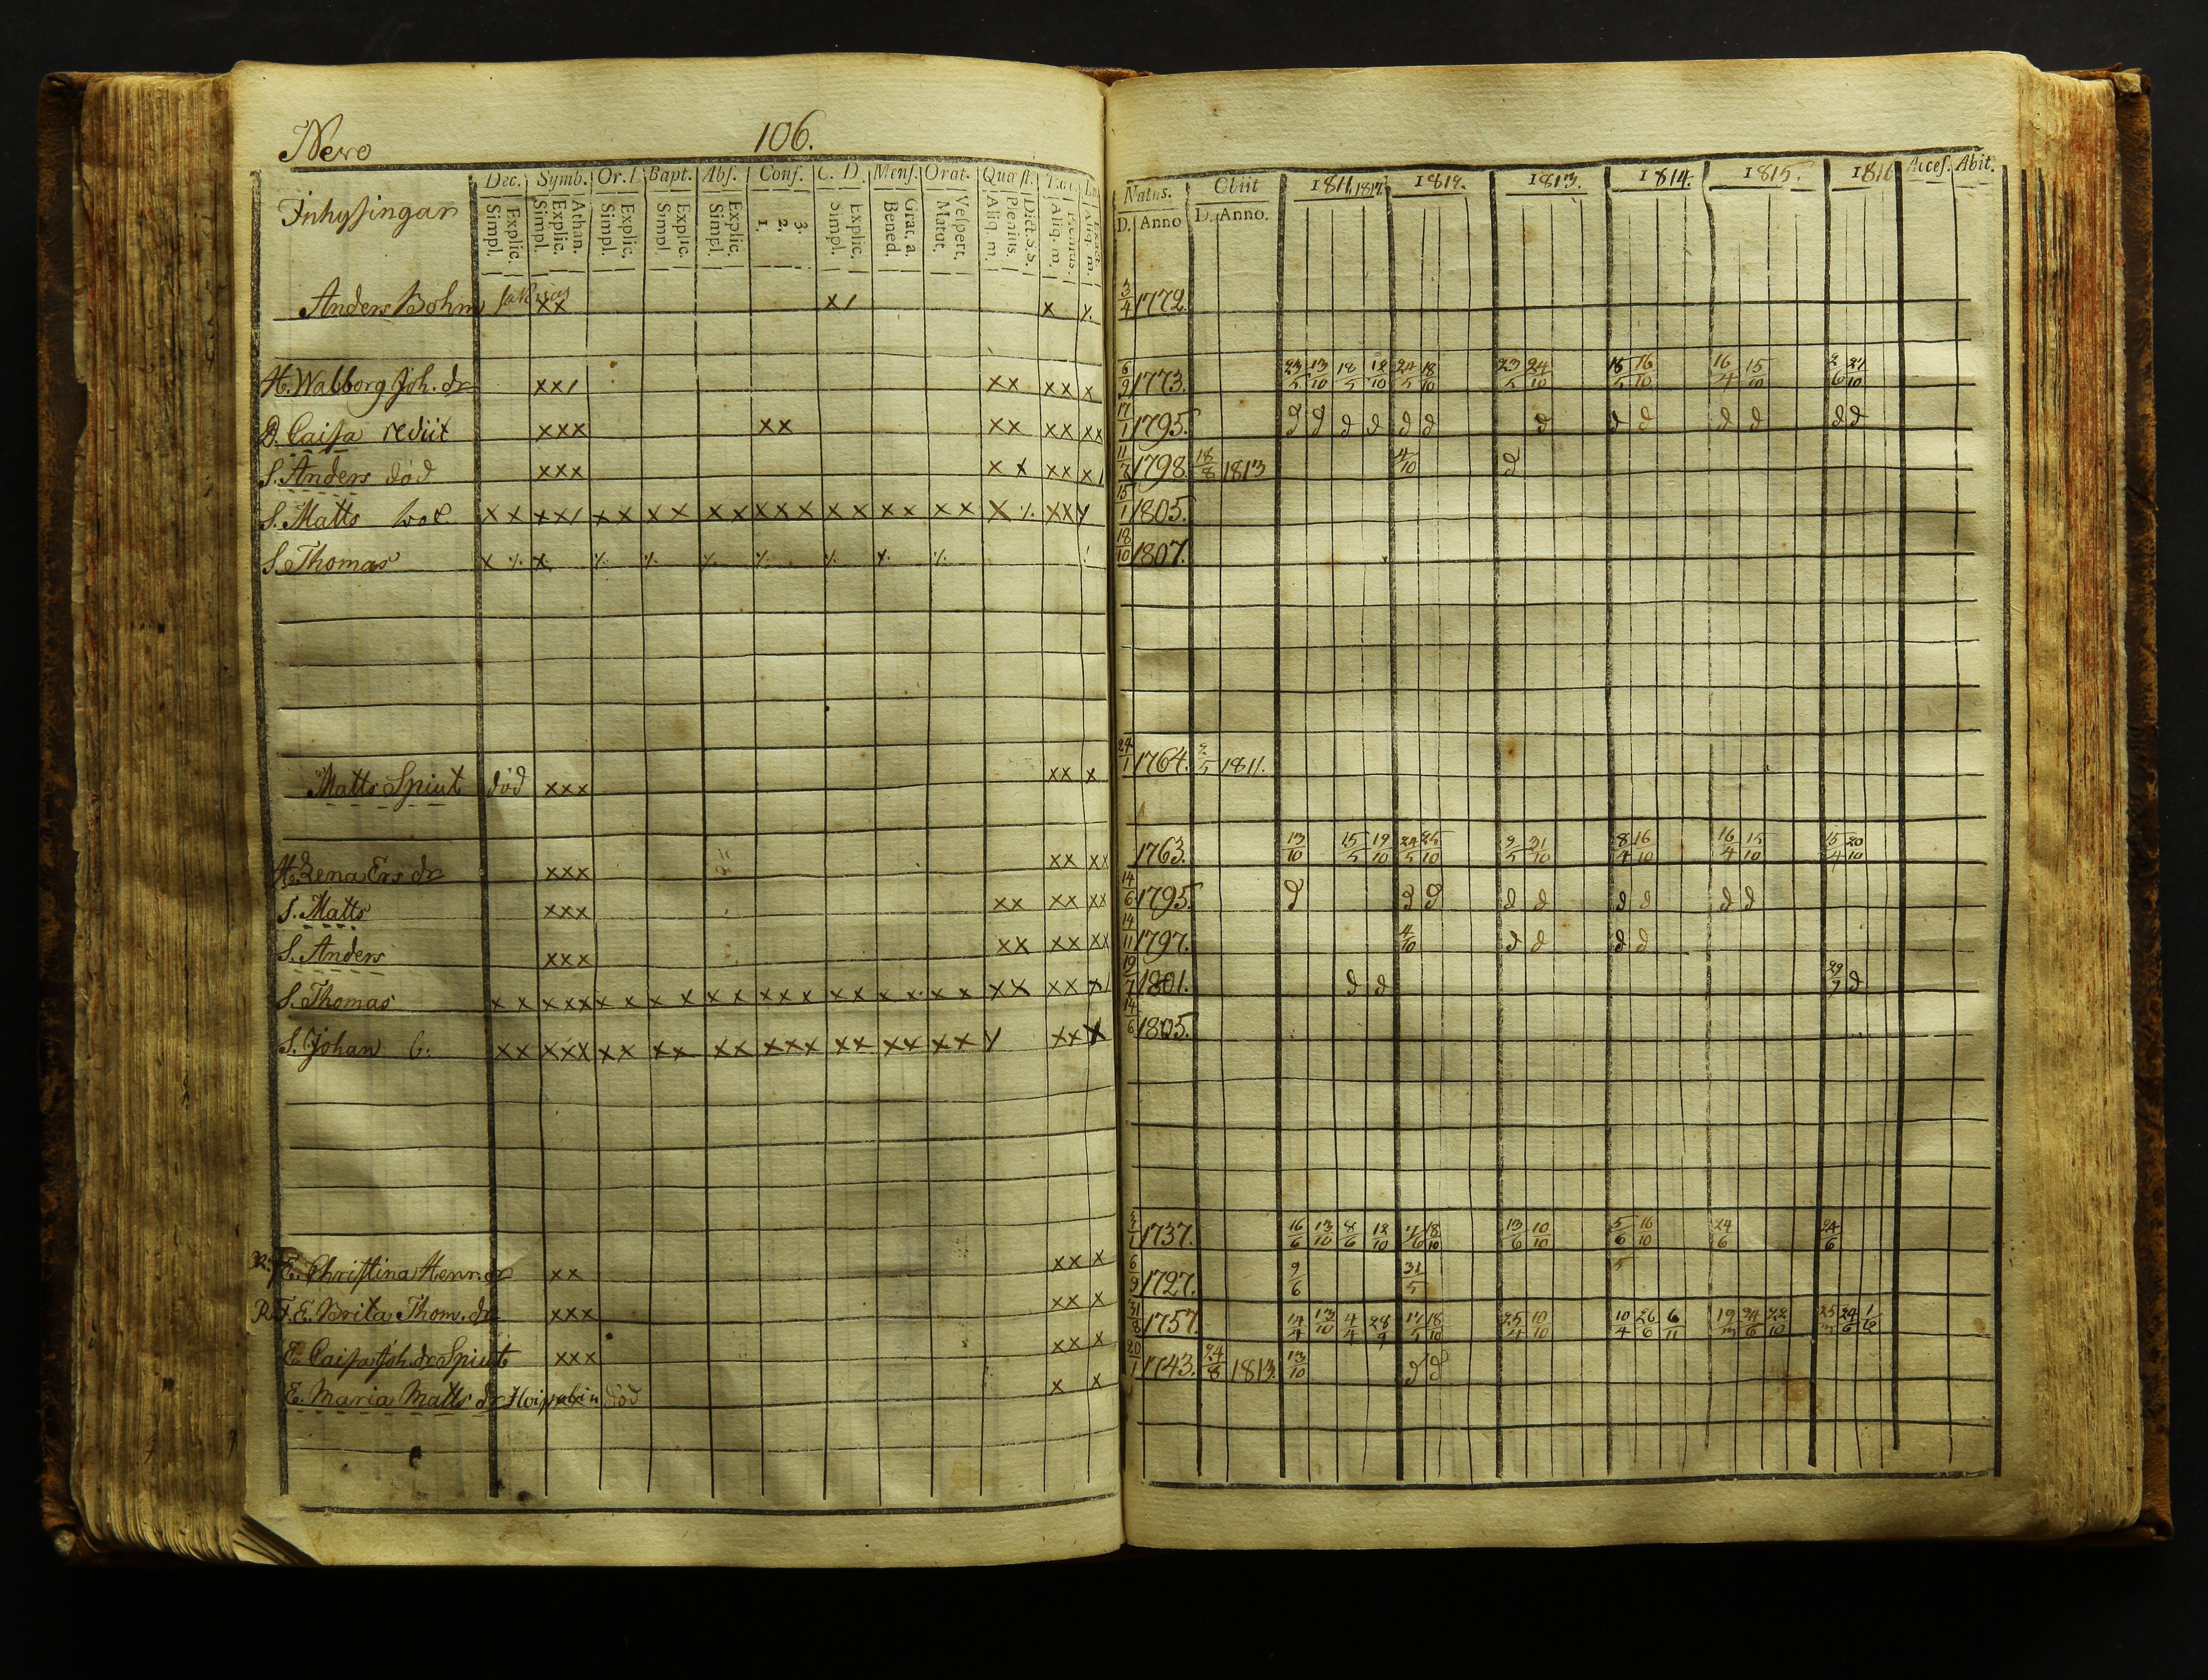 Nero 106.
Inhysingar
Dec. Symb. Or. D. Bapt. Abs. Conf. C. D. Mens. Orat. Quæst.
Explic. Simpl. Athan. Explic. Simpl. Explic. Simpl. Explic. Simpl. Explic. Simpl. 3. 2. 1. Explic. Simpl. Grat. a. Bened. Vespert. Matut. Dict. S. S. Plenius. Aliq. m. Plenius. Aliq. m. Exact. Aliq. m.
Natus. Obiit 1811, 1817. 1812. 1813. 1814. 1815. 1816 Acces. Abit.
D. Anno D. Anno.
Anders Bohm xx x/ x 3/4 1772.
H. Walborg Joh. dr xx/ xx xx x 6/9 1773. 23/5 13/10 18/5 12/10 24/5 18/10 23/5 24/10 18/5 16/10 16/4 15/10 2/6 27/10
D. Caisa rediit xxx xx xx xx xx 17/1 1795.
S. Anders död xxx x x xx x/ 1798 18/8 1813 4/10
S. Matts xx xx/ xx xx xx xxx xx xx xx x ./. xx 15/1 1805.
S. Thomas x ./. x ./. ./. ./. ./. ./. ./. ./. 18/10 1807.
Matts Spiut död xxx xx x 24/1 1764. 2/5 1811.
H. Lena Ers dr xxx xx xx 1763. 13/10 15/5 19/10 24/5 25/10 9/5 31/10 8/4 16/10 16/4 15/10 15/4 20/10
S. Matts xxx xx xx xx 14/6 1795.
S. Anders xxx xx xx xx 14/11 1797. 4/10
S. Thomas xx xxx xx xx xx xxx xx xx xx xx xx x/ 19/7 1801. 29/7
S. Johan xx xxx xx xx xx xxx xx xx xx xx x 14/6 1805.
E. Christina Henr. dr xx xx x 1737. 16/6 13/10 8/6 12/10 18/10 13/6 10/10 5/6 16/10 24/6 24/6
R. F. E. Brita Thom. dr xxx xx x 6/9 1727. 9/6 31/5
E. Caisa Joh. dr Spiut xxx xx x 31/8 1757. 14/4 13/10 4/4 28/9 17/5 18/10 25/4 10/10 10/4 26/6 6/11 24/6 22/10 24/6
E. Maria Matts dr död x x 20/1 1743. 24/8 1813. 13/10